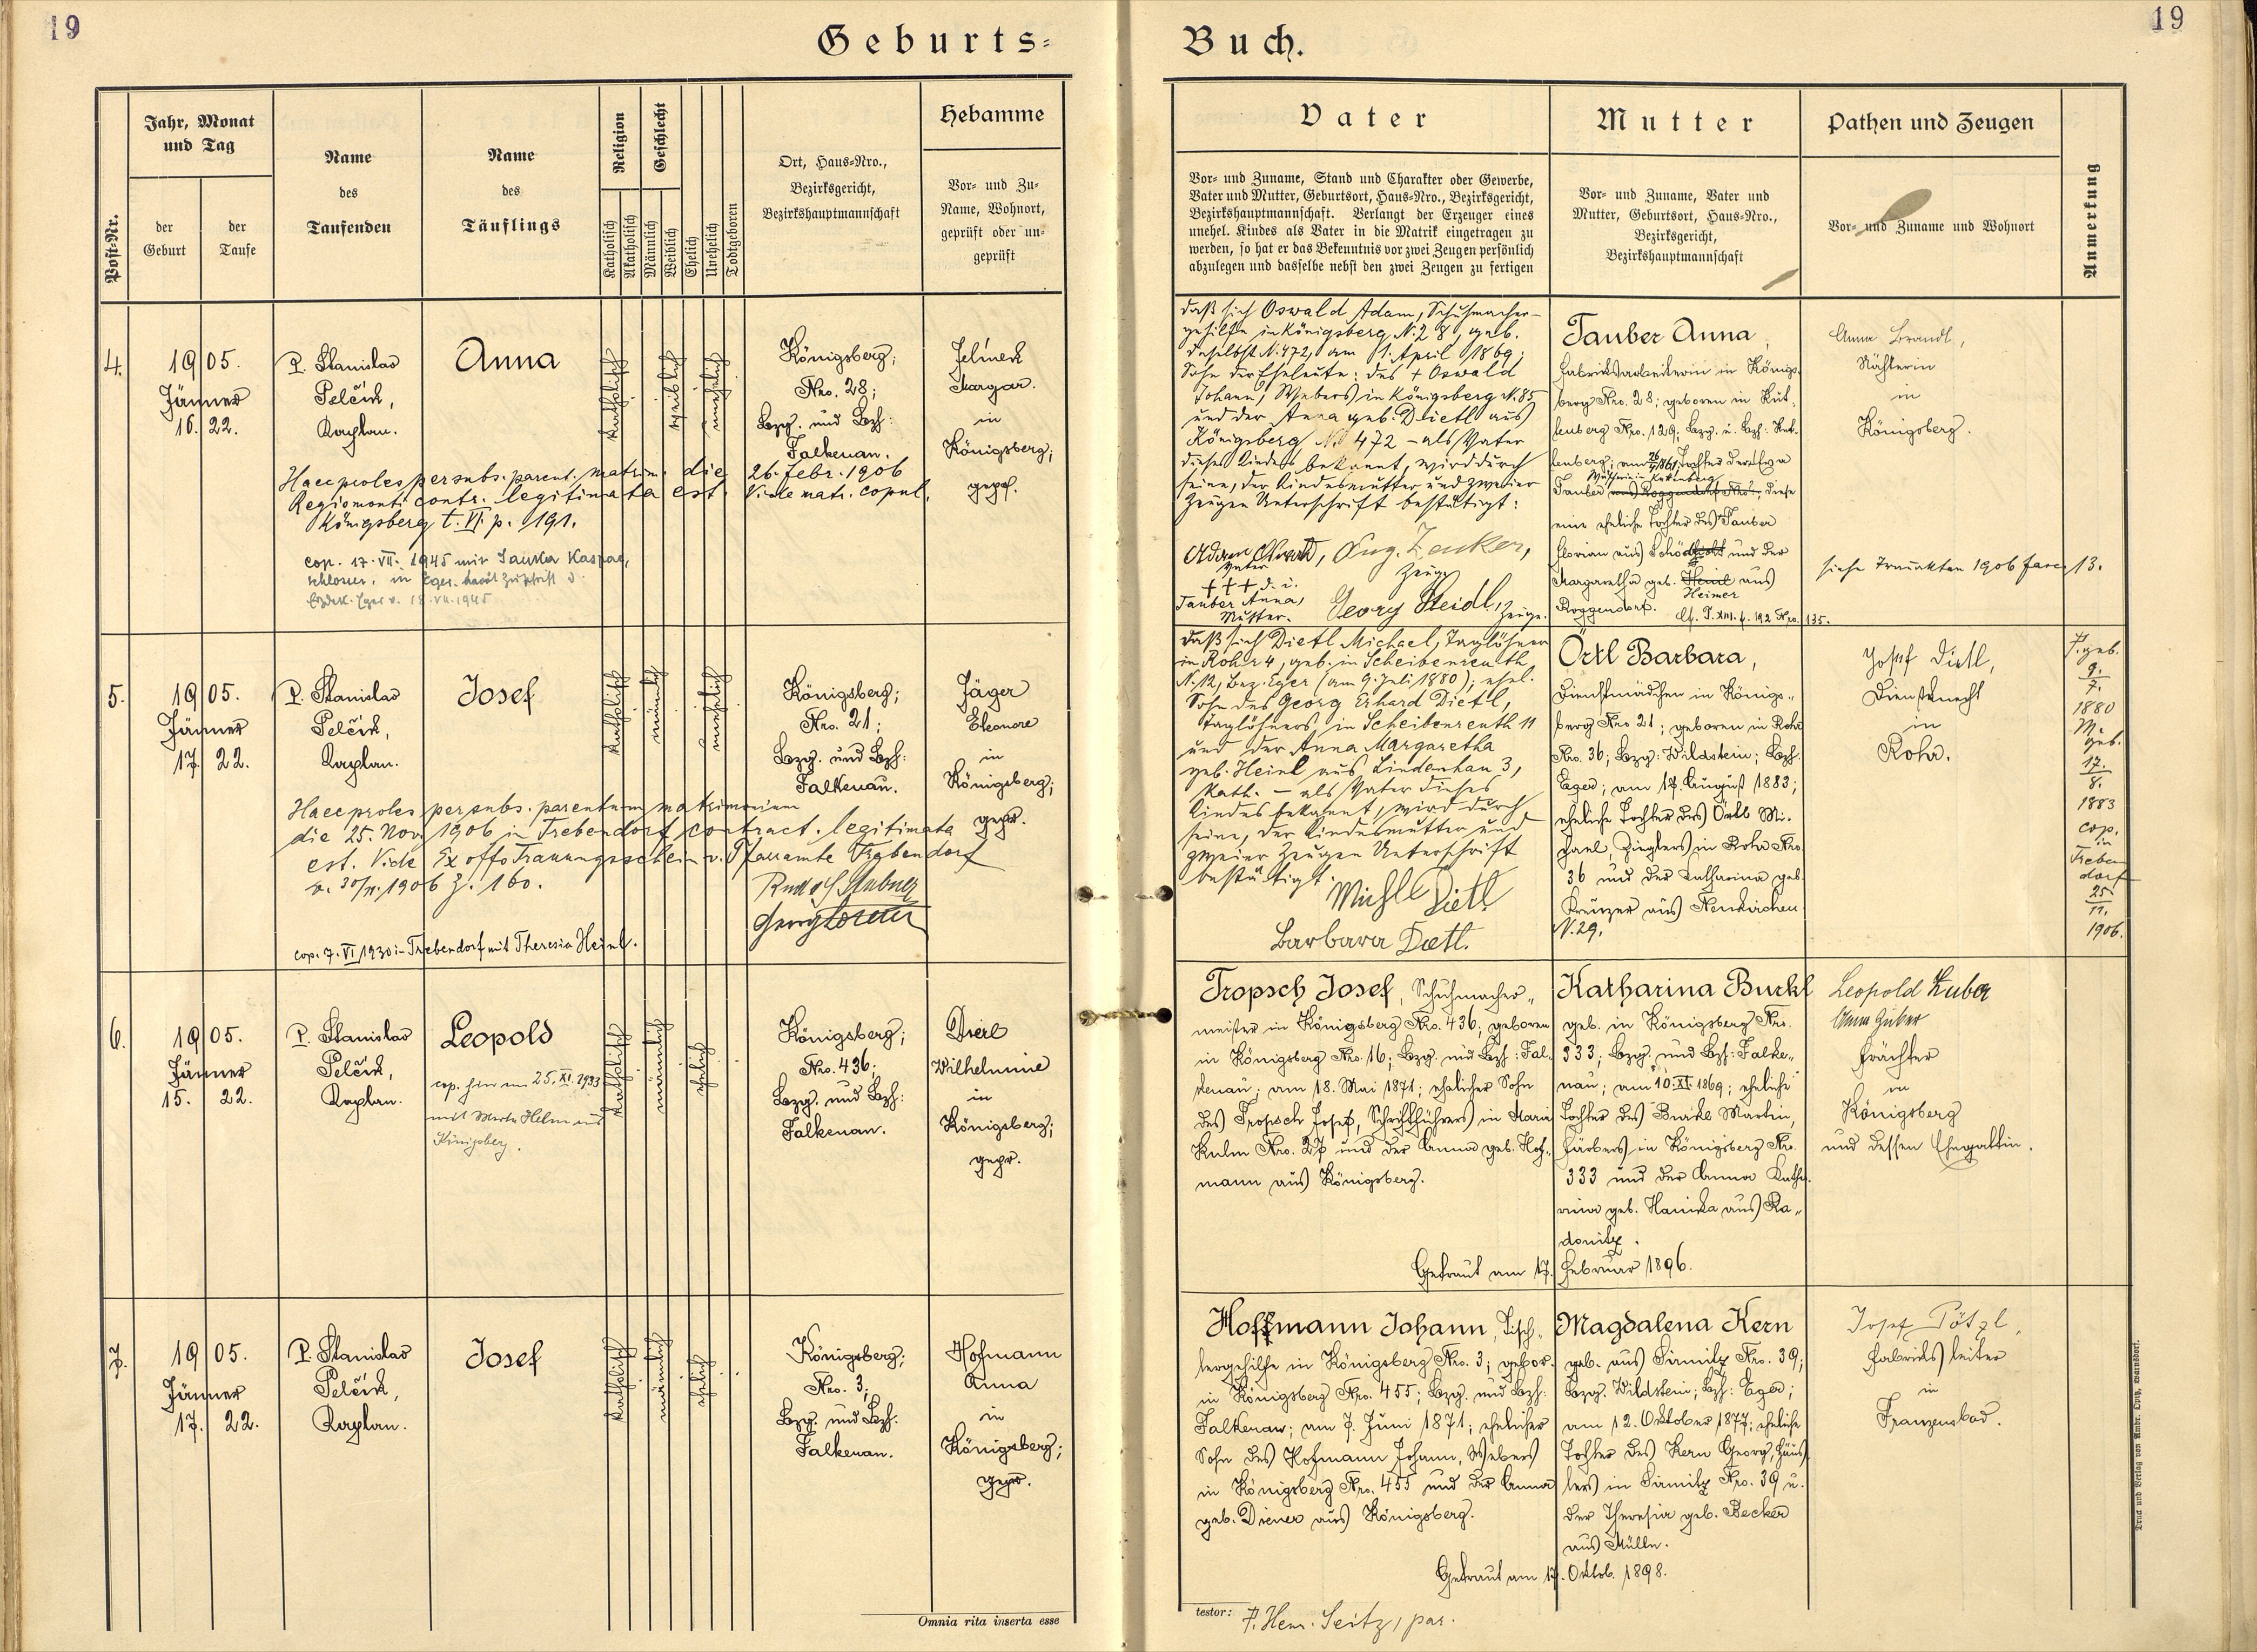 19
Geburts=
Buch.
19
Post-Nr.
Jahr, Monat
und Tag
der
Geburt
der
Taufe
Name
des
Taufenden
Name
des
Täuflings
Religion
Katholisch
Akatholisch
Geschlecht
Männlich
Weiblich
Ehelich
Unehelich
Todtgeboren
Ort, Haus-Nro.,
Bezirksgericht,
Bezirkshauptmannschaft
Hebamme
Vor- und Zu-
Name, Wohnort,
geprüft oder un-
geprüft
Vater
Vor- und Zuname, Stand und Charakter oder Gewerbe,
Vater und Mutter, Geburtsort, Haus-Nro., Bezirksgericht,
Bezirkshauptmannschaft. Verlangt der Erzeuger eines
unehel. Kindes als Vater in die Matrik eingetragen zu
werden, so hat er das Bekenntnis vor zwei Zeugen persönlich
abzulegen und dasselbe nebst den zwei Zeugen zu fertigen
Mutter
Vor- und Zuname, Vater und
Mutter, Geburtsort, Haus-Nro.,
Bezirksgericht,
Bezirkshauptmannschaft
Pathen und Zeugen
Vor- und Zuname und Wohnort
Anmerkung
4.
1905.
Jänner
16. 22.
P. Stanislav
Pelčík,
Kaplan.
Anna
katholisch
weiblich
unehelich
Königsberg;
Nro. 28;
Bzg. und Bzh:
Falkenau.
Jelinek
Margar.
in
Königsberg;
gepr.
Haec proles per subs. parent. matrim. die 26. Febr. 1906
Regiomonti contr. legitimata est. Vide matr. copul.
Königsberg t. VI. p. 191.
cop. 17. VII. 1945 mit Kaspar,
Schlosser, in Eger.
Eger v. 18. VII. 1945
daß sich Oswald Adam, Schuhmacher-
gehilfe in Königsberg N. 28, geb.
daselbst N. 472, am 1. April 1869;
Sohn der Eheleute: des + Oswald
Johann, Webers in Königsberg N. 85
und der Anna geb. Dietl aus
Königsberg No 472 – als Vater
dieses Kindes bekannt, wird durch
seine, der Kindesmutter und zweier
Zeugen Unterschrift bestätigt:
Adam Oswald, Aug. Zenker,
Vater Zeuge
+++ d. i.
Tauber Anna,
Mutter.
Georg Heidl, Zeuge.
Tauber Anna,
Fabriksarbeiterin in Königs-
berg Nro. 28; geboren in Kut-
tenberg Nro. 129; Bzg. u. Bzh: Kut-
tenberg; am 26/ 1861, Tochter der Eva
in Kuttenberg
Tauber aus Roggendorf Nro., diese
eine eheliche Tochter des Tauber
Florian aus und der
Margaretha geb. Heinl aus
Heimer
Roggendorf. Cf. T. XIII. f. 192 Nro. 135.
Anna Brandl,
Nähterin
in
Königsberg.
siehe Trauakten 1906 fasc. 13.
5.
1905.
Jänner
17. 22.
P. Stanislav
Pelčík,
Kaplan.
Josef
katholisch
männlich
unehelich
Königsberg;
Nro. 21;
Bzg. und Bzh:
Falkenau.
Jäger
Eleonore
in
Königsberg;
gepr.
Haec proles per subs. parentum matrimonium
die 25. Nov. 1906 in Trebendorf contract. legitimata
est. Vide Ex offo Trauungsschein v. Pfarramte Trebendorf
v. 30/11. 1906 Z. 160.
cop. 7. VI 1930 in Trebendorf mit Theresia Heinl.
daß sich Dietl Michael, Taglöhner
in Rohr 4, geb. in Scheibenreuth
N. 12, Bez. Eger (am 9. Juli 1880); ehel.
Sohn des Georg Erhard Dietl,
Taglöhners, in Scheibenreuth 11
und der Anna Margaretha
geb. Heinl aus Lindenhau 3,
kath. – als Vater dieses
Kindes bekannt, wird durch
seine, der Kindesmutter und
zweier Zeugen Unterschrift
bestätigt.
Michl Dietl
Barbara Dietl.
Örtl Barbara,
Dienstmädchen in Königs-
berg Nro 21; geboren in Rohr
Nro. 36; Bzg: Wildstein; Bzh:
Eger; am 17. August 1883;
eheliche Tochter des Örtl Mi-
chael, Zieglers in Rohr Nro.
36 und der Katharina geb.
Kreuzer aus Neukirchen
N. 29.
Josef Dietl,
Dienstknecht
in
Rohr.
P. geb.
9.
7.
1880
M.
geb.
17.
8.
1883
cop.
in
Treben
dorf
25.
11.
1906.
6.
1905.
Jänner
15. 22.
P. Stanislav
Pelčík,
Kaplan.
Leopold
cop. hier am 25. XI. 1933
mit Helm aus
Königsberg.
katholisch
männlich
ehelich
Königsberg;
Nro. 436;
Bzg. und Bzh:
Falkenau.
Dierl
Wilhelmine
in
Königsberg;
gepr.
Tropsch Josef, Schuhmacher-
meister in Königsberg Nro. 436; geboren
in Königsberg Nro. 16; Bzg. und Bzh: Fal-
kenau; am 18. Mai 1871; ehelicher Sohn
des Tropsch Josef, Schriftführers in Maria
Kulm Nro. 27 und der Anna geb. Hof-
mann aus Königsberg.
Katharina Burkl
geb. in Königsberg Nro.
333; Bzg. und Bzh: Falke-
nau; am 10. XI. 1869; eheliche
Tochter des Burkl Martin,
Färbers in Königsberg Nro.
333 und der Anna Katha-
rina geb. Hanika aus Ra-
donitz.
Getraut am 17. Februar 1896.
Leopold Huber
Anna Huber
in
Königsberg
und dessen Ehegattin.
7.
1905.
Jänner
17. 22.
P. Stanislav
Pelčík,
Kaplan.
Josef
katholisch
männlich
ehelich
Königsberg;
Nro. 3;
Bzg. und Bzh:
Falkenau.
Hofmann
Anna
in
Königsberg;
gepr.
Hoffmann Johann, Tisch-
lergehilfe in Königsberg Nro. 3; gebor.
in Königsberg Nro. 455; Bzg. und Bzh:
Falkenau; am 7. Juni 1871; ehelicher
Sohn des Hofmann Johann, Webers
in Königsberg Nro. 455 und der Anna
geb. Diener aus Königsberg.
Magdalena Kern
geb. aus Sirmitz Nro. 39;
Bzg. Wildstein; Bzh: Eger;
am 12. Oktober 1877; eheliche
Tochter des Kern Georg, Häus-
lers in Sirmitz Nro. 39 u.
der Theresia geb. Becker
aus Mülln.
Getraut am 17. Oktob. 1898.
Josef Pötzl,
Fabriksleiter
in
Franzensbad.
Omnia rita inserta esse
testor: P. Henr. Seitz, par.
Druck und Verlag von Ambr. Opitz, Warnsdorf.